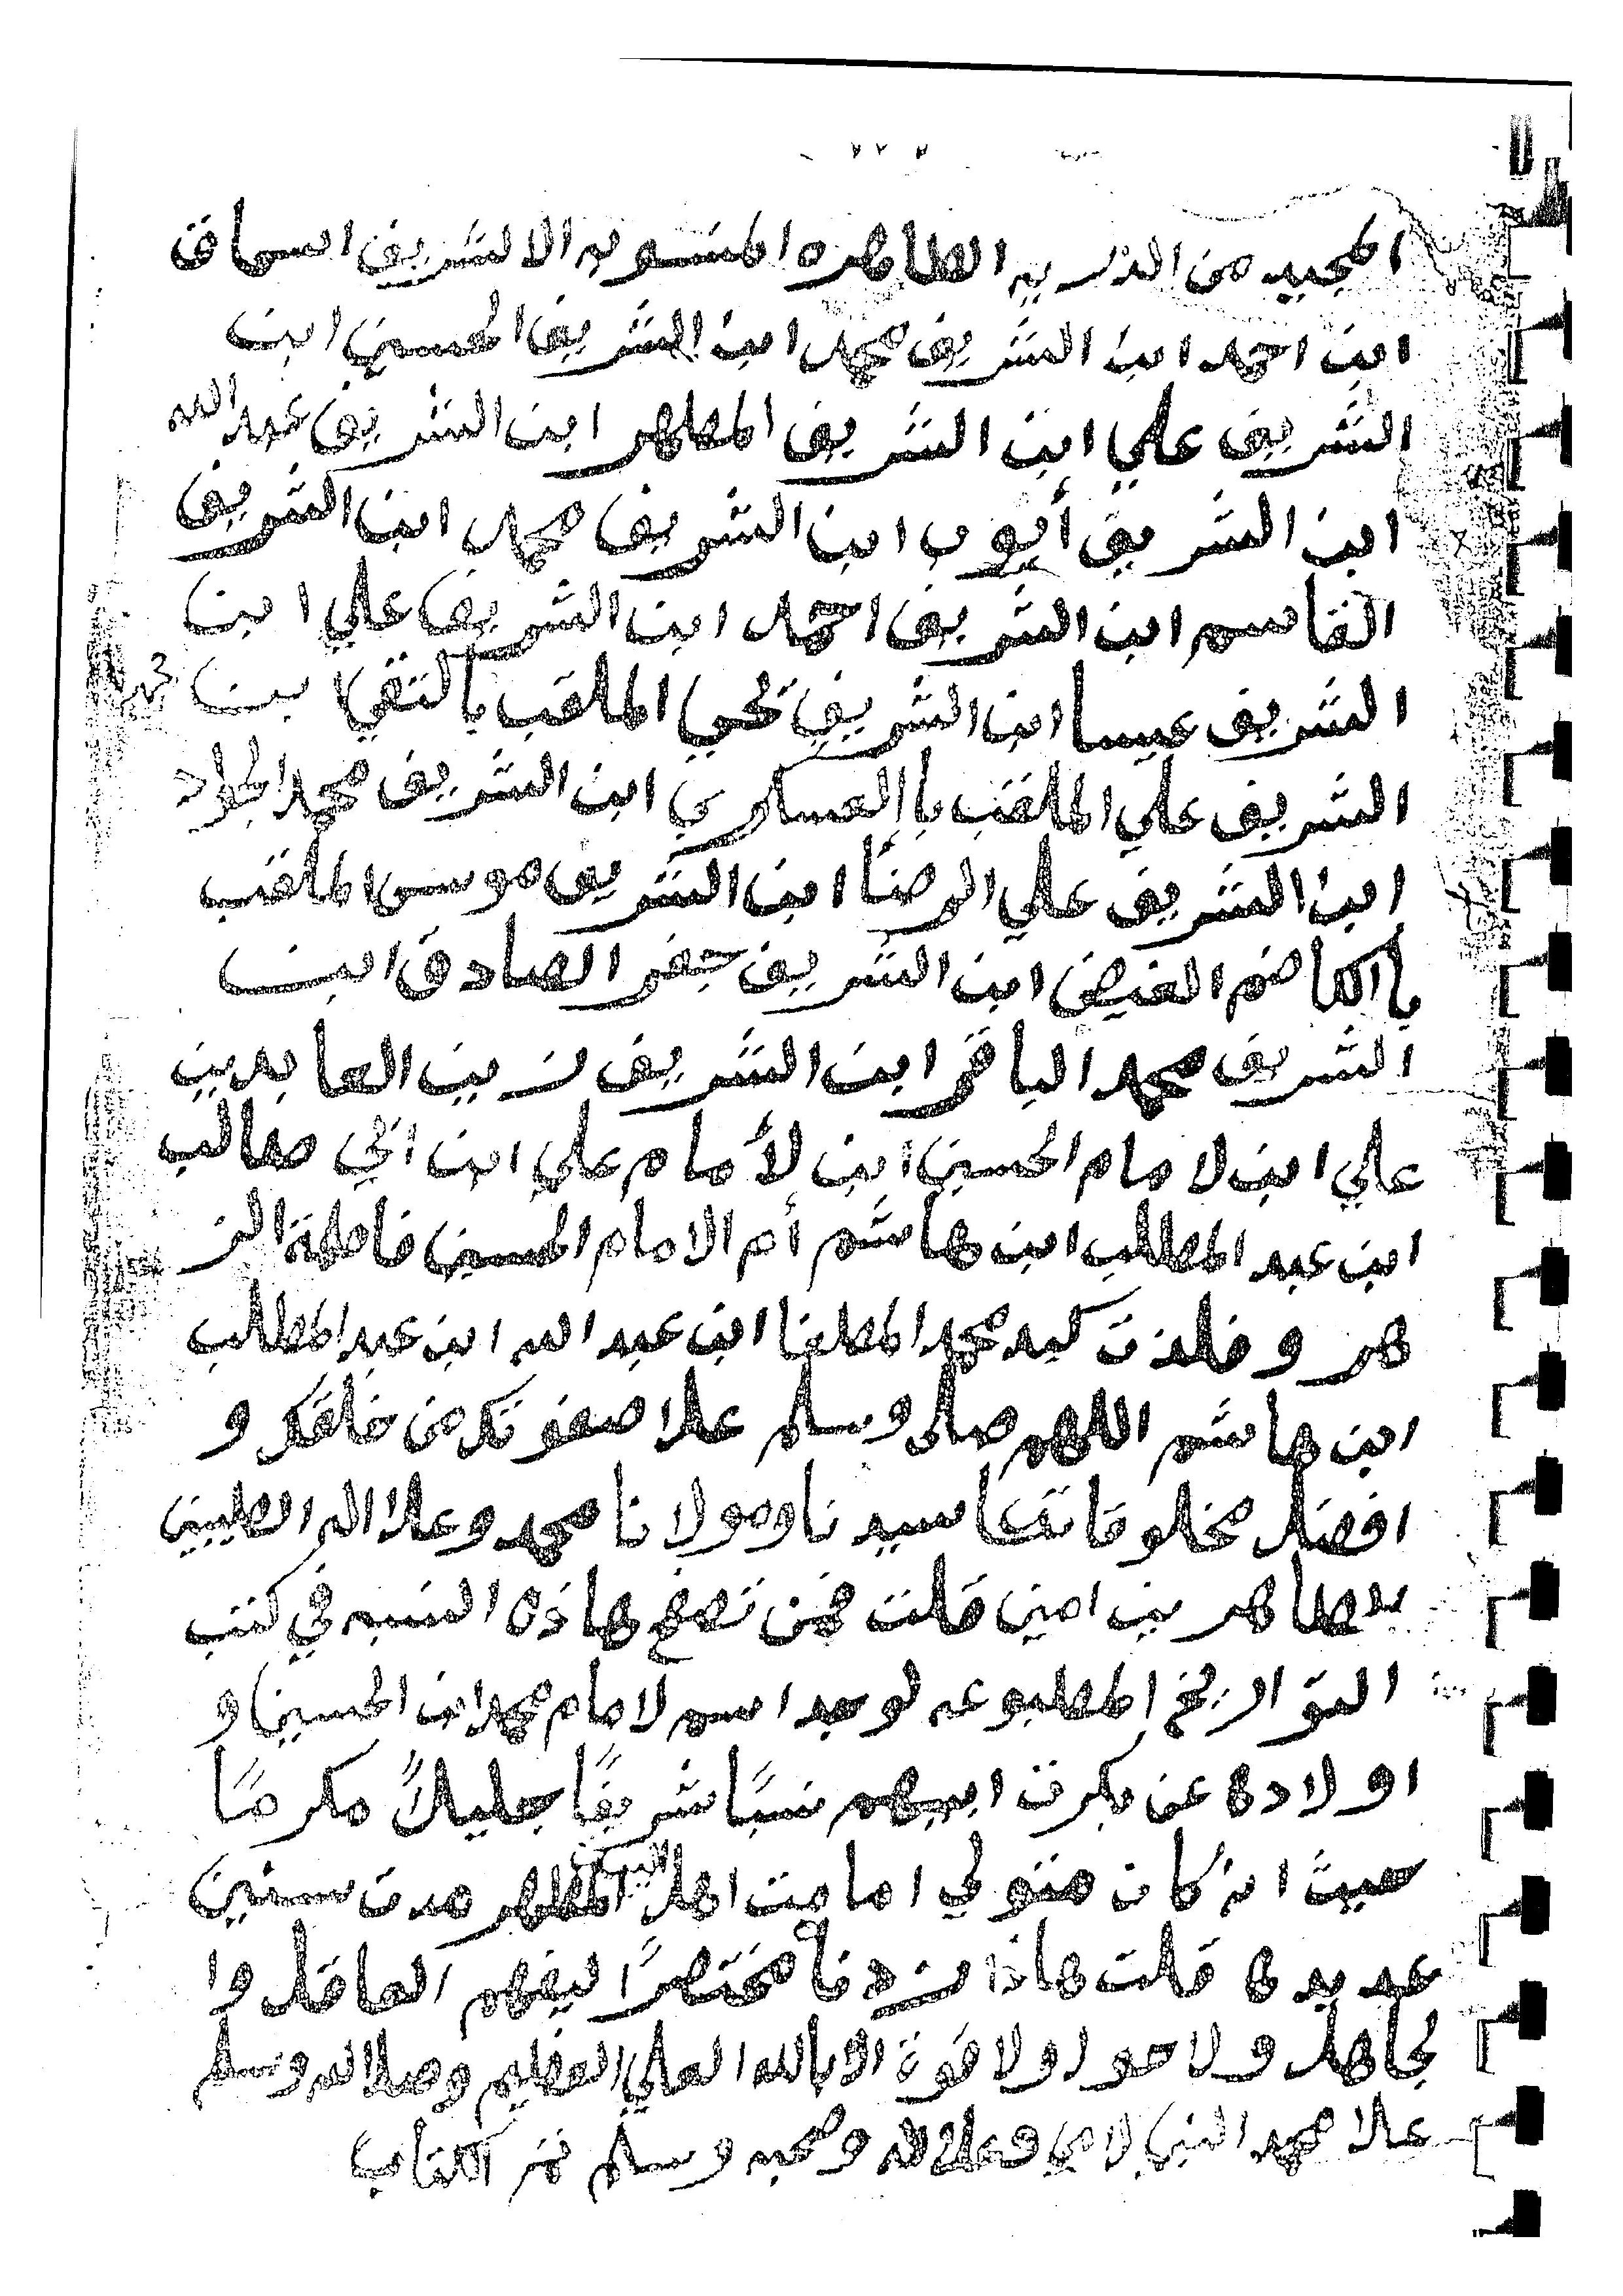 المجيد من الذريه الطاهره المنسوبه الا الشريف اسحاق
ابن احمد ابن الشريف محمد ابن الشريف الحسين ابن
الشريف علي ابن الشريف المطهر ابن الشريف عبد الله
ابن الشريف أيوب ابن الشريف محمد ابن الشريف
القاسم ابن الشريف احمد ابن الشريف علي ابن
الشريف عيسا ابن الشريف يحي الملقب بالتقي بن
الشريف علي الملقب باالعسكري ابن الشريف محمد الجواد
ابن الشريف علي الرضا ابن الشريف موسى الملقب
باالكاضم الغيض ابن الشريف جعفر الصادق ابن
الشريف محمد الباقر ابن الشريف زين العابدين
علي ابن لامام الحسين ابن لأمام علي ابن ابي طالب
ابن عبد المطلب ابن هاشم أم الامام الحسين فاطمة الز
هر و فلذت كبد محمد المطفا ابن عبد الله ابن عبد المطلب
ابن هاشم اللهم صلى وسلم علا صفوتك من خلقك و
افضل مخلوقاتك سيدنا ومولانا محمد وعلا اله الطيبين
لاطاهرين امين قلت فمن تصفح هاذه النسبه في كتب
التواريخ المطبوعه لوجد اسم لامام محمد ابن الحسين و
اولاده عن بكرت ابيهم نسبًا شريفًا جليلاً مكرمًا
حيث انه كان متولي امامت اهل البيت المطهر مدت سنين
عديدها قلت هاذا زدنا مختصرًا ليفهم العاقل وا
لجاهل ولا حول ولا قوة الا بالله العلي العظيم وصلا الله وسلم
علا محمد النبي لامي وعلى اله وصحبه وسلم تمز الكتاب